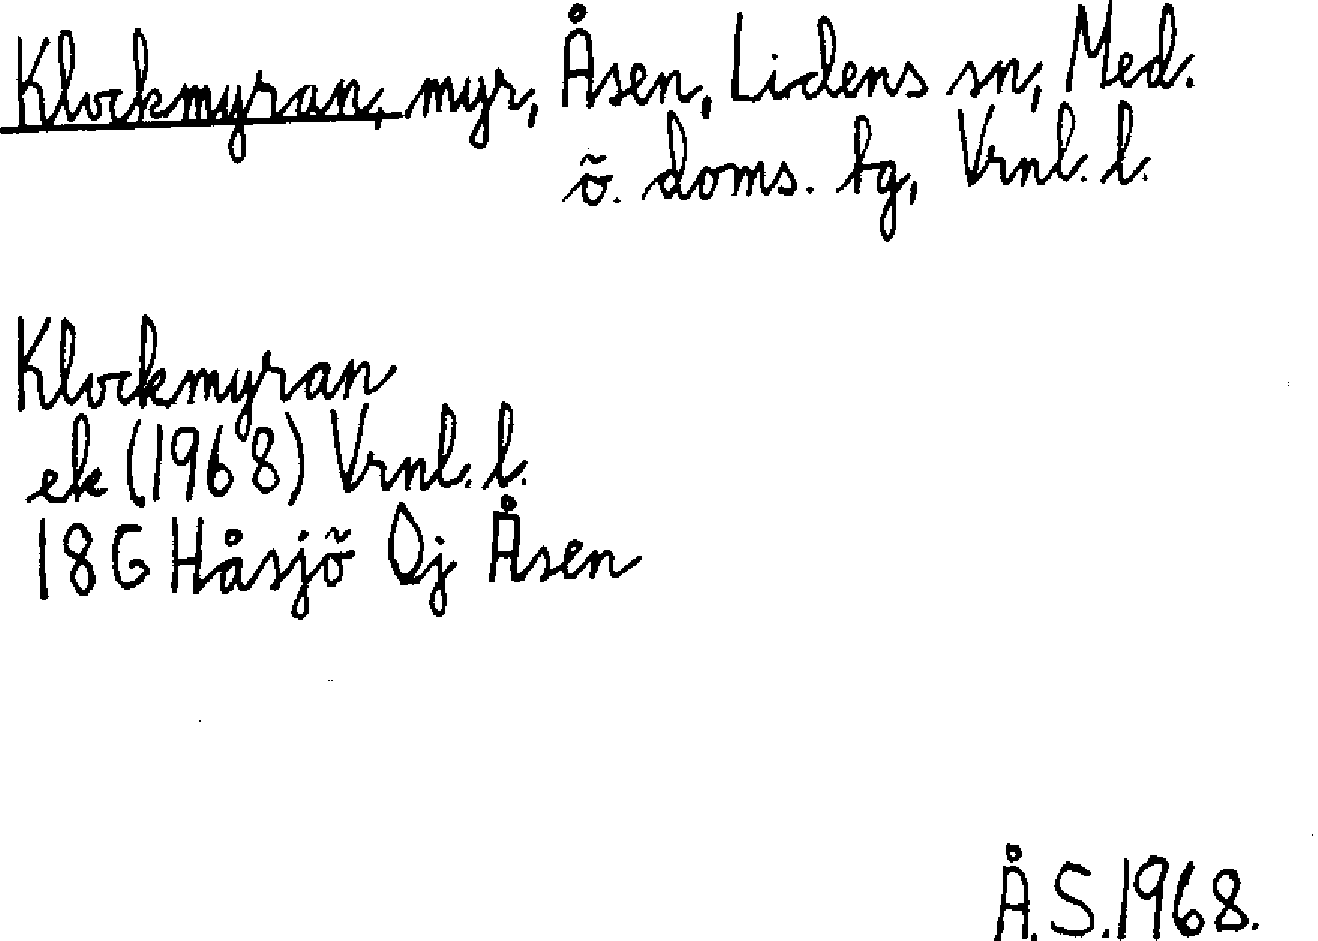 Klockmyran, myr, Åsen, Lidens sn, Med.
ö. doms. tg, Vrnl. l.
Klockmyran
ek (1968) Vrnl. l.
18G Håsjö Oj Åsen
Å.S.1968.